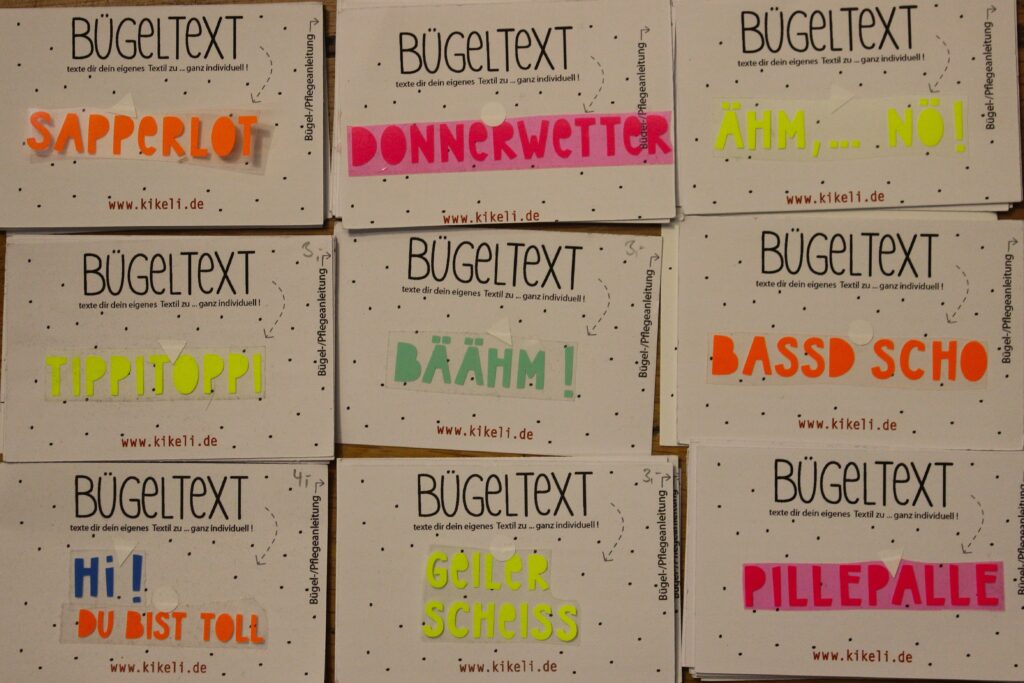 BÜGELTEXT
texte dir dein eigenes Textil zu ... ganz individuell !
Bügel-/Pflegeanleitung
SAPPERLOT
www.kikeli.de
BÜGELTEXT
texte dir dein eigenes Textil zu ... ganz individuell !
Bügel-/Pflegeanleitung
DONNERWETTER
www.kikeli.de
BÜGELTEXT
texte dir dein eigenes Textil zu ... ganz individuell !
Bügel-/Pflegeanleitung
ÄHM,... NÖ!
www.kikeli.de
BÜGELTEXT
3,-
texte dir dein eigenes Textil zu ... ganz individuell !
Bügel-/Pflegeanleitung
TIPPITOPPI
www.kikeli.de
BÜGELTEXT
3,-
texte dir dein eigenes Textil zu ... ganz individuell !
Bügel-/Pflegeanleitung
BÄÄHM!
www.kikeli.de
BÜGELTEXT
texte dir dein eigenes Textil zu ... ganz individuell !
Bügel-/Pflegeanleitung
BASSD SCHO
www.kikeli.de
BÜGELTEXT
4,-
texte dir dein eigenes Textil zu ... ganz individuell !
Bügel-/Pflegeanleitung
Hi!
DU BIST TOLL
www.kikeli.de
BÜGELTEXT
3,-
texte dir dein eigenes Textil zu ... ganz individuell !
Bügel-/Pflegeanleitung
GEILER
SCHEISS
www.kikeli.de
BÜGELTEXT
texte dir dein eigenes Textil zu ... ganz individuell !
Bügel-/Pflegeanleitung
PILLEPALLE
www.kikeli.de